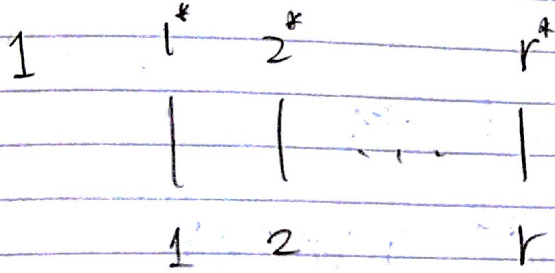 1 1* 2* r*
| | ... |
1 2 r